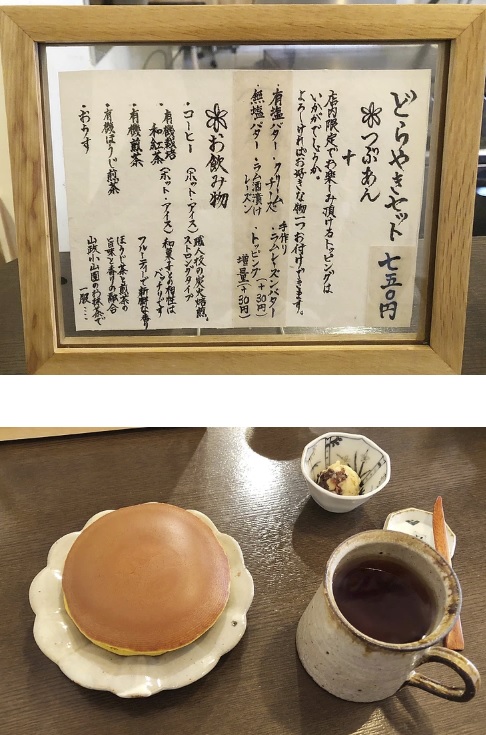 どらやきセット 七五〇円
❀つぶあん
＋
店内限定でお楽しみ頂けるトッピングは
いかがでしょうか。
よろしければお好きな物一つお付けできます。
・有塩バター ・クリームチーズ ・手作りラムレーズンバター(+30円)
・無塩バター ・ラム酒漬けレーズン ・トッピング増量(+30円)
❀お飲み物
・コーヒー(ホット・アイス) 炭火焙煎。
ストロングタイプ
・有機栽培和紅茶(ホット・アイス) 和菓子との相性は
ベッチリです
・有機煎茶 フルーティーで新鮮な香り
・有機ほうじ煎茶 ほうじ茶と煎茶の
旨味と香りの融合
・おうす 山政小山園のお抹茶で
一服…